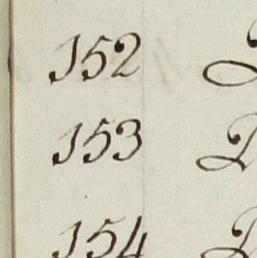 152
153
154